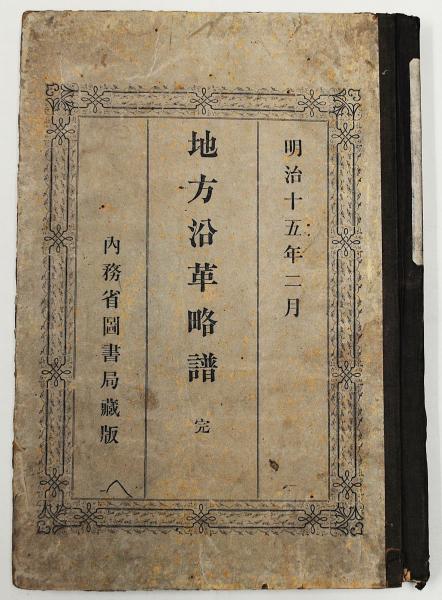 明治十五年二月
地方沿革略譜 完
內務省圖書局藏版